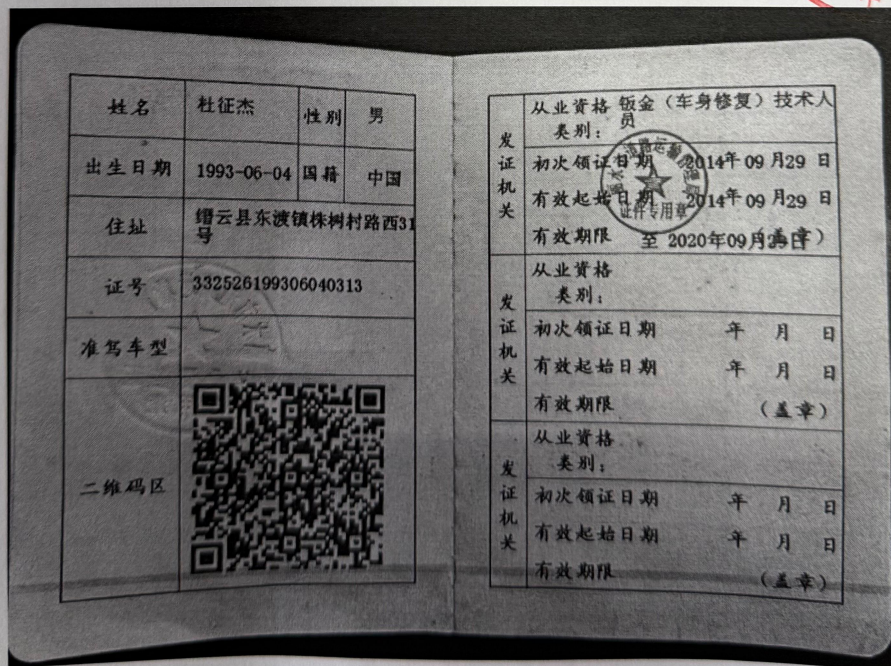 姓名 杜征杰 性别 男
出生日期 1993-06-04 国籍 中国
住址 缙云县东渡镇株树村路西31
号
证号 332526199306040313
准驾车型
二维码区
发证机关
从业资格 钣金（车身修复）技术人
类别： 员
初次领证日期 2014年 09 月29 日
有效起始日期 2014年 09 月29 日
证件专用章
有效期限 至 2020年09月29日 （盖章）
发证机关
从业资格
类别：
初次领证日期 年 月 日
有效起始日期 年 月 日
有效期限 （盖章）
发证机关
从业资格
类别：
初次领证日期 年 月 日
有效起始日期 年 月 日
有效期限 （盖章）